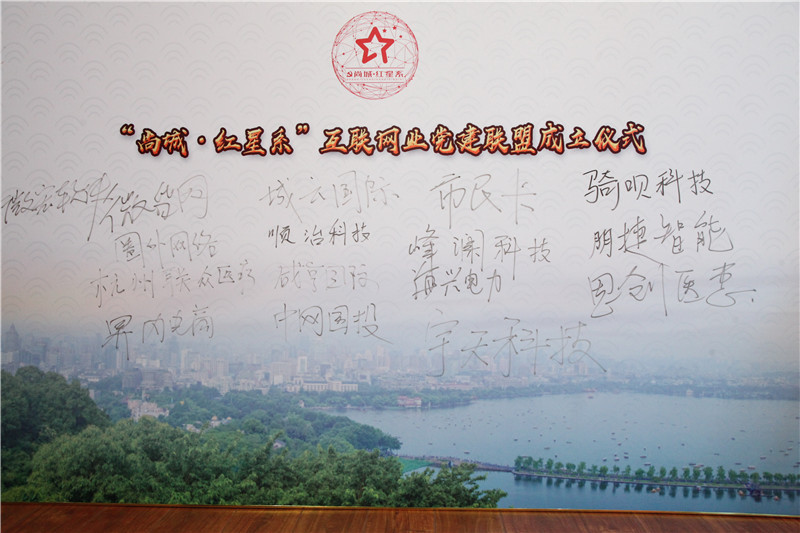 尚城·红星系
“尚城·红星系”互联网业党建联盟成立仪式
微宏软件 微智网 城云国际 市民卡 骑呗科技
圈外网络 顺治科技 峰澜科技 朋捷智能
杭州联众医疗 国际 海兴电力 思创医惠
界内电商 中网国投 宇天科技